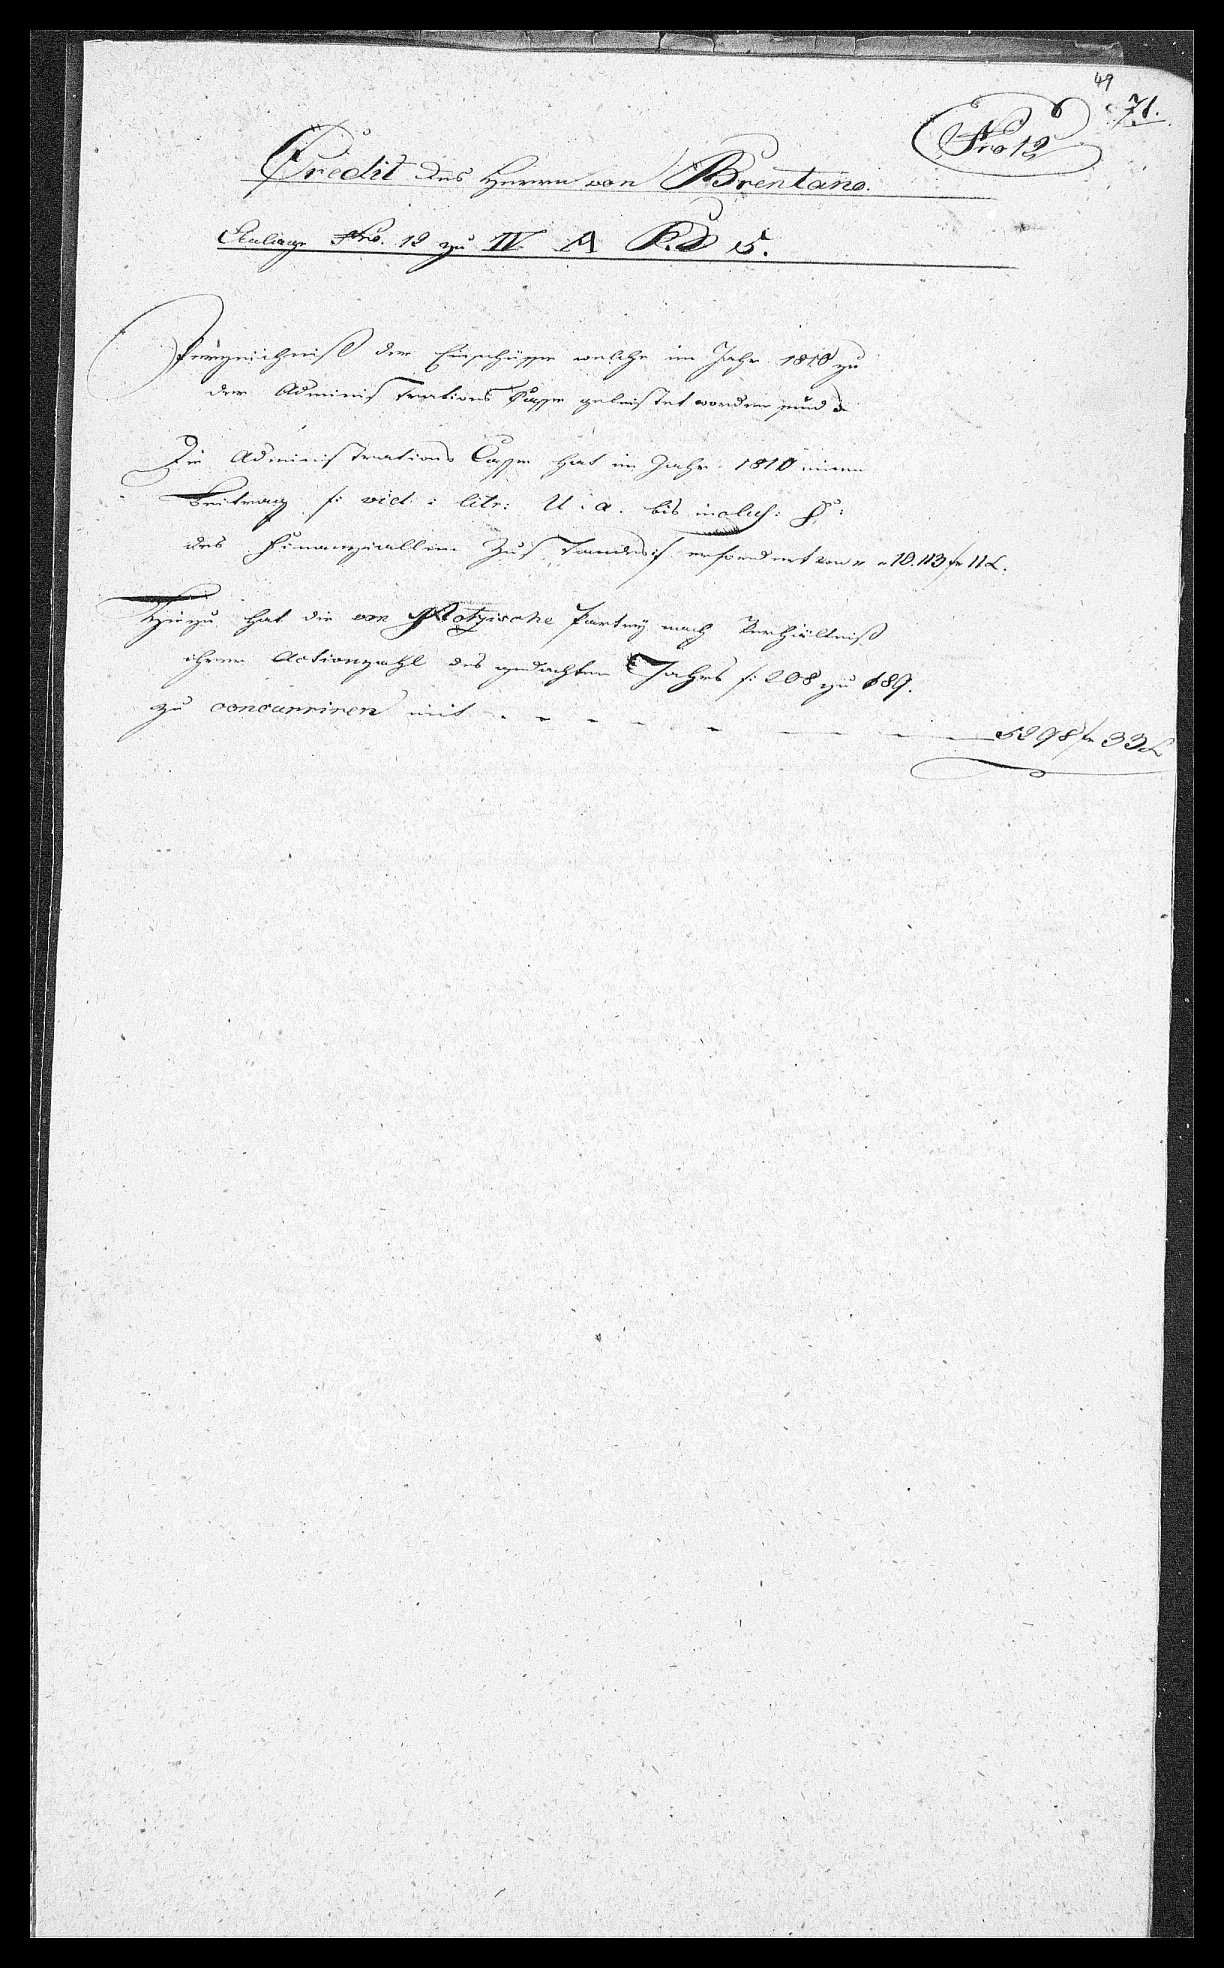 49
71.
Nro 12
Credit des Herrn von Brentano.
Beilage Nro. 12 zu IV. A R.D 15.
Verzeichniß der Einschüsse welche im Jahr 1810 zu
der Administrations Casse geleistet worden sind
Die Administrations Casse hat im Jahr 1810 einen
Beitrag /: vid: litr: U. a. bis inclus:
des Finanziellen Zustandes :/ erfordert von 10.113 fr 11 x.
Hiezu hat die von Motzische Partey nach Verhältniß
ihrer Actienzahl des gedachten Jahrs /: 208 zu 189.
zu concurriren mit 5298 fr 33 x